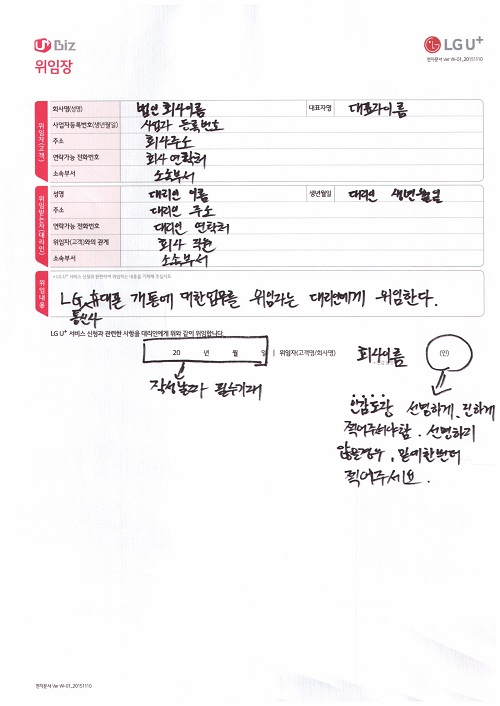 U+ Biz
LG U+
위임장
전자문서 Ver W-01_20151110
위임자(고객)
회사명(성명) 법인 회사이름 대표자명 대표자이름
사업자등록번호(생년월일) 사업자 등록번호
주소 회사주소
연락가능 전화번호 회사 연락처
소속부서 소속부서
위임받는자(대리인)
성명 대리인 이름 생년월일 대리인 생년월일
주소 대리인 주소
연락가능 전화번호 대리인 연락처
위임자(고객)와의 관계 회사 직원
소속부서 소속부서
위임내용
• LG U+ 서비스 신청과 관련하여 위임하는 내용을 기재해 주십시오.
LG 휴대폰 개통에 대한업무를 위임하는 대리인에게 위임한다.
통신사
LG U+ 서비스 신청과 관련한 사항을 대리인에게 위와 같이 위임합니다.
20 년 월 일 위임자(고객명/회사명) 회사이름 (인)
작성날짜 필수기재
인감도장 선명하게, 진하게
찍어주셔야함. 선명하지
않을경우, 밑에한번더
찍어주세요.
전자문서 Ver W-01_20151110